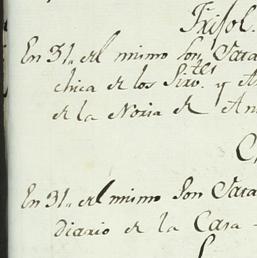 Frisol.
En 31,, del mismo son Para
chica de los Sirv.tes y A
de la Noria de An
C
En 31,, del mismo son Para
Diario de la Casa